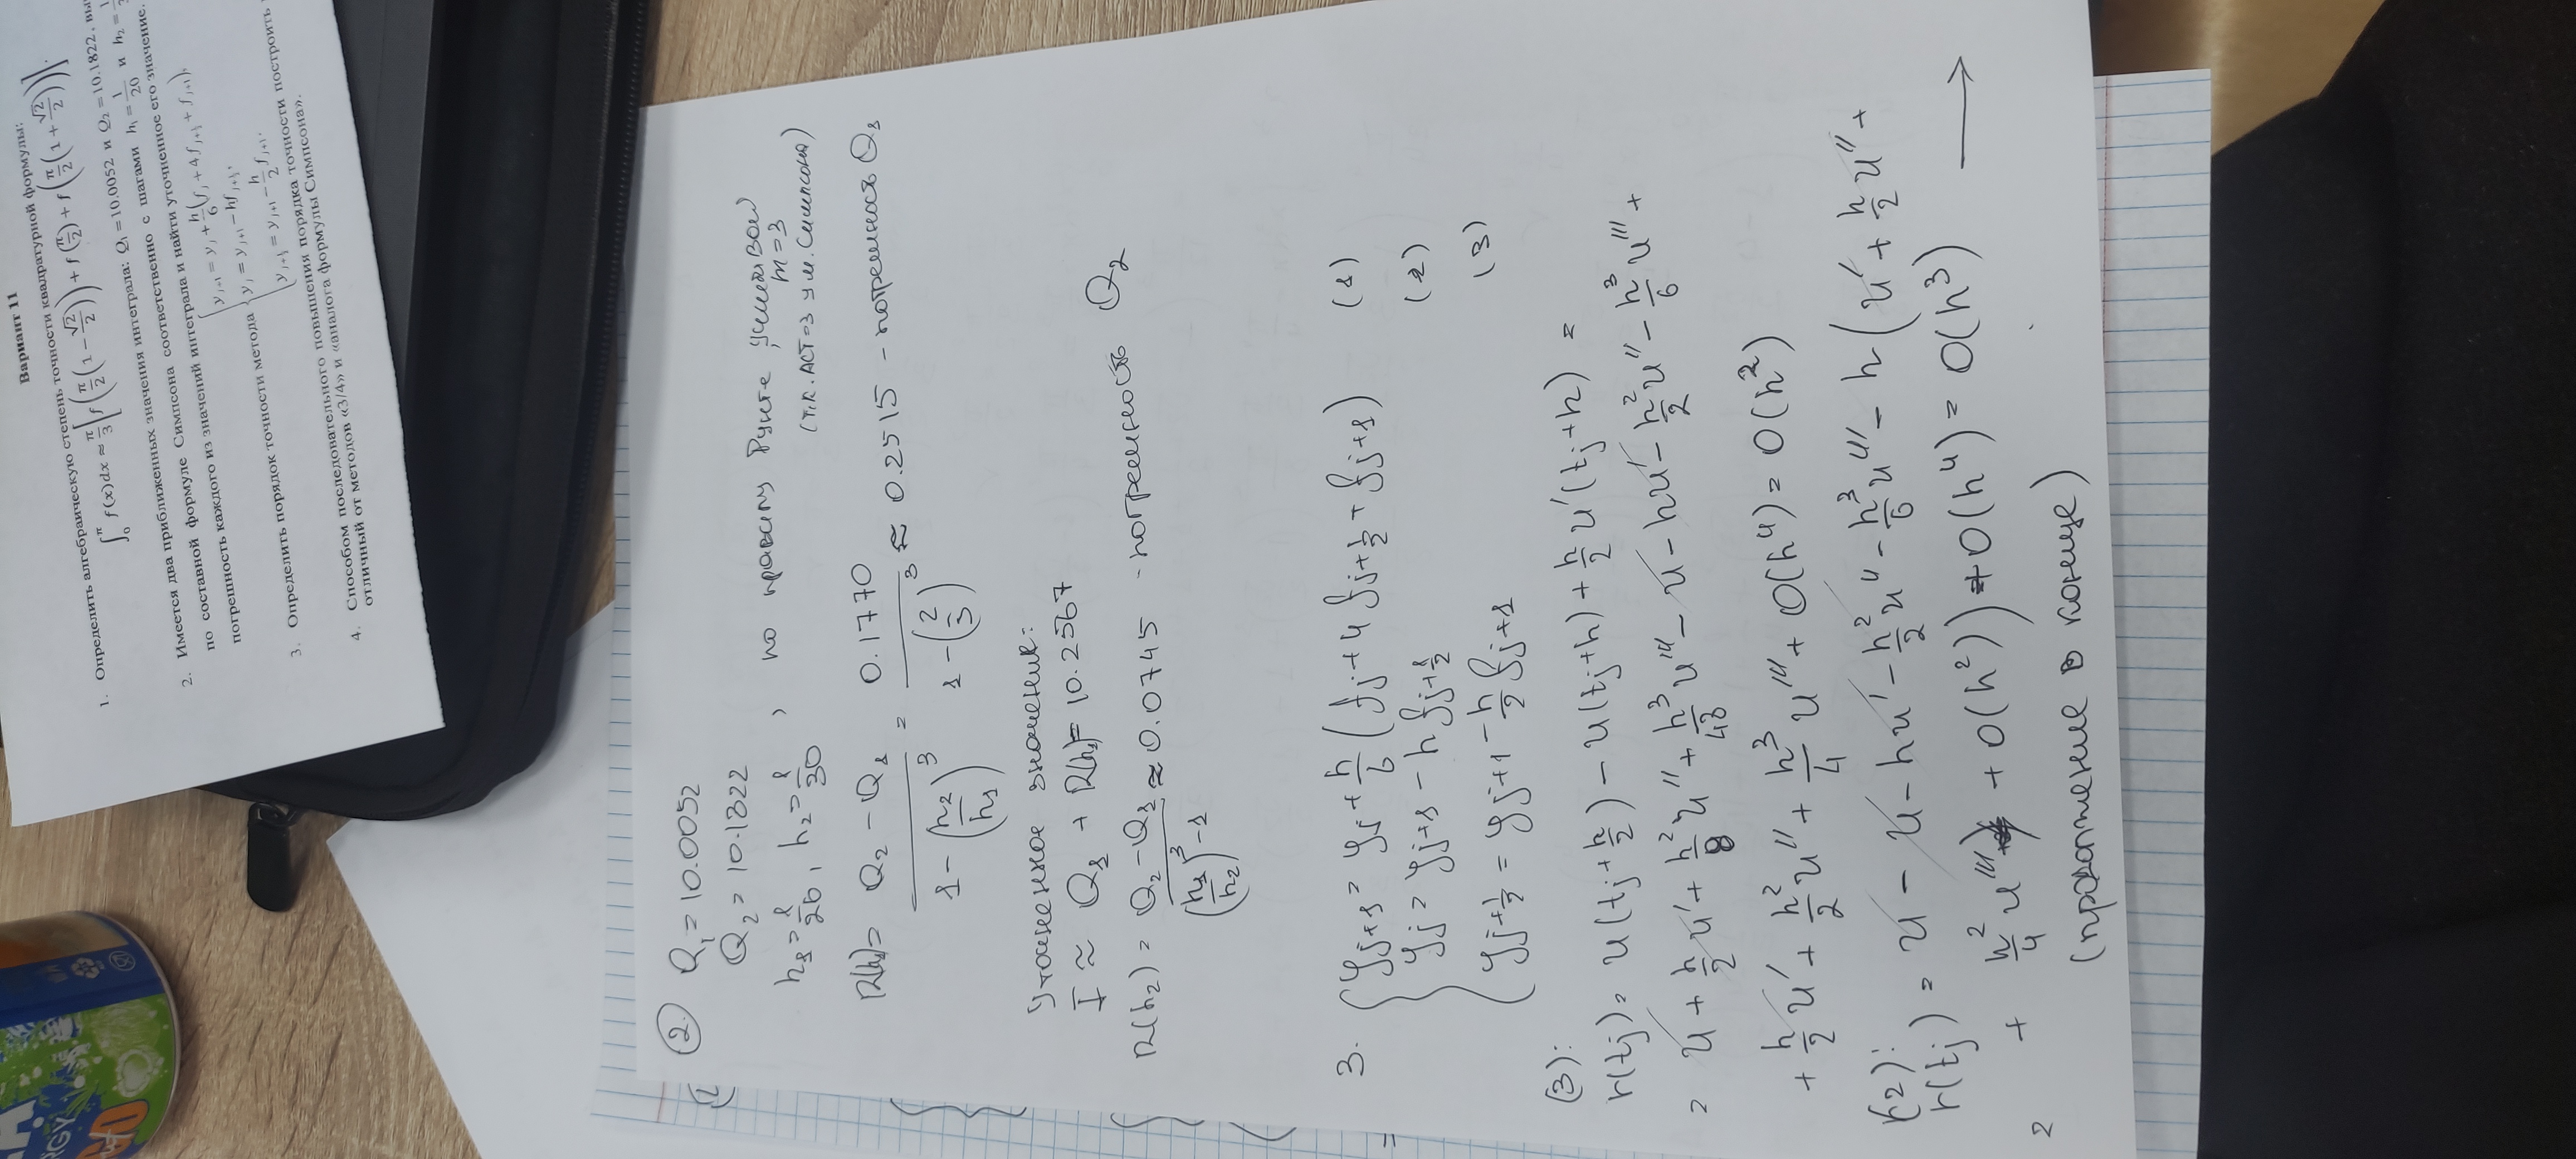 Вариант 11
1. Определить алгебраическую степень точности квадратурной формулы:
∫₀^π f(x)dx ≈ π/3 [f(π/2(1 − √2/2)) + f(π/2) + f(π/2(1 + √2/2))].
2. Имеется два приближенных значения интеграла: Q₁ = 10.0052 и Q₂ = 10.1822,
по составной формуле Симпсона соответственно с шагами h₁ = 1/20 и h₂ =
погрешность каждого из значений интеграла и найти уточненное его значение.
3. Определить порядок точности метода { y_{j+1} = y_j + h/6 (f_j + 4f_{j+½} + f_{j+1}),
y_j = y_{j+1} − hf_{j+½},
y_{j+½} = y_{j+1} − h/2 f_{j+1}.
4. Способом последовательного повышения порядка точности построить
отличный от методов «3/4» и «аналога формулы Симпсона».
2. Q₁ = 10.0052
Q₂ = 10.1822
h₁ = 1/20, h₂ = 1/30, по правилу Рунге учитывая m = 3
(т.к. АСТ=3 у м. Симпсона)
R(h₁) = (Q₂ − Q₁)/(1 − (h₂/h₁)³) = 0.1770/(1 − (2/3)³) ≈ 0.2515 – погрешность Q₁
Уточненное значение:
I ≈ Q₁ + R(h₁) = 10.2567
R(h₂) = (Q₂ − Q₁)/((h₁/h₂)³ − 1) ≈ 0.0745 - погрешность Q₂
3. { y_{j+1} = y_j + h/6 (f_j + 4f_{j+½} + f_{j+1}) (1)
y_j = y_{j+1} − hf_{j+½} (2)
y_{j+½} = y_{j+1} − h/2 f_{j+1} (3)
(3):
r(t_j) = u(t_j + h/2) − u(t_j + h) + h/2 u′(t_j + h) =
= u + h/2 u′ + h²/8 u″ + h³/48 u‴ − u − hu′ − h²/2 u″ − h³/6 u‴ +
+ h/2 u′ + h²/2 u″ + h³/4 u‴ + O(h⁴) = O(h²)
(2):
r(t_j) = u − u − hu′ − h²/2 u″ − h³/6 u‴ − h(u′ + h/2 u″ +
+ h²/4 u‴ + O(h²)) + O(h⁴) = O(h³) →
(продолжение в конце)